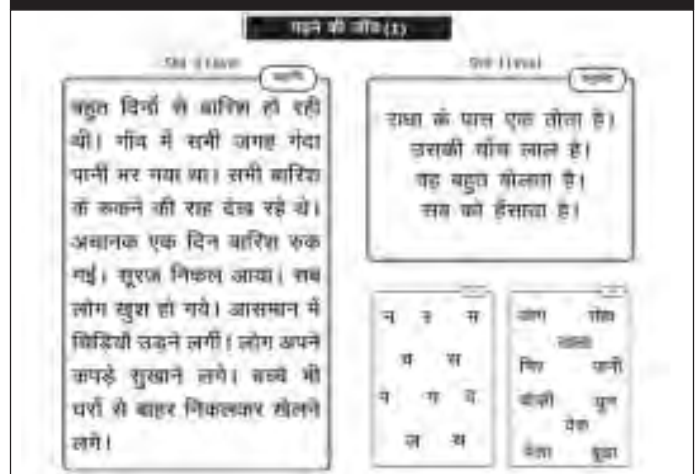 पढ़ने की जाँच (1)
Std II Level
Std I Level
कहानी
बहुत दिनों से बारिश हो रही
थी। गाँव में सभी जगह गंदा
पानी भर गया था। सभी बारिश
के रुकने की राह देख रहे थे।
अचानक एक दिन बारिश रुक
गई। सूरज निकल आया। सब
लोग खुश हो गये। आसमान में
चिड़ियाँ उड़ने लगीं। लोग अपने
कपड़े सुखाने लगे। बच्चे भी
घरों से बाहर निकलकर खेलने
लगे।
राधा के पास एक तोता है।
उसकी चोंच लाल है।
वह बहुत बोलता है।
सब को हँसाता है।
स
च स
प ग द
ल थ
लोहा
पानी